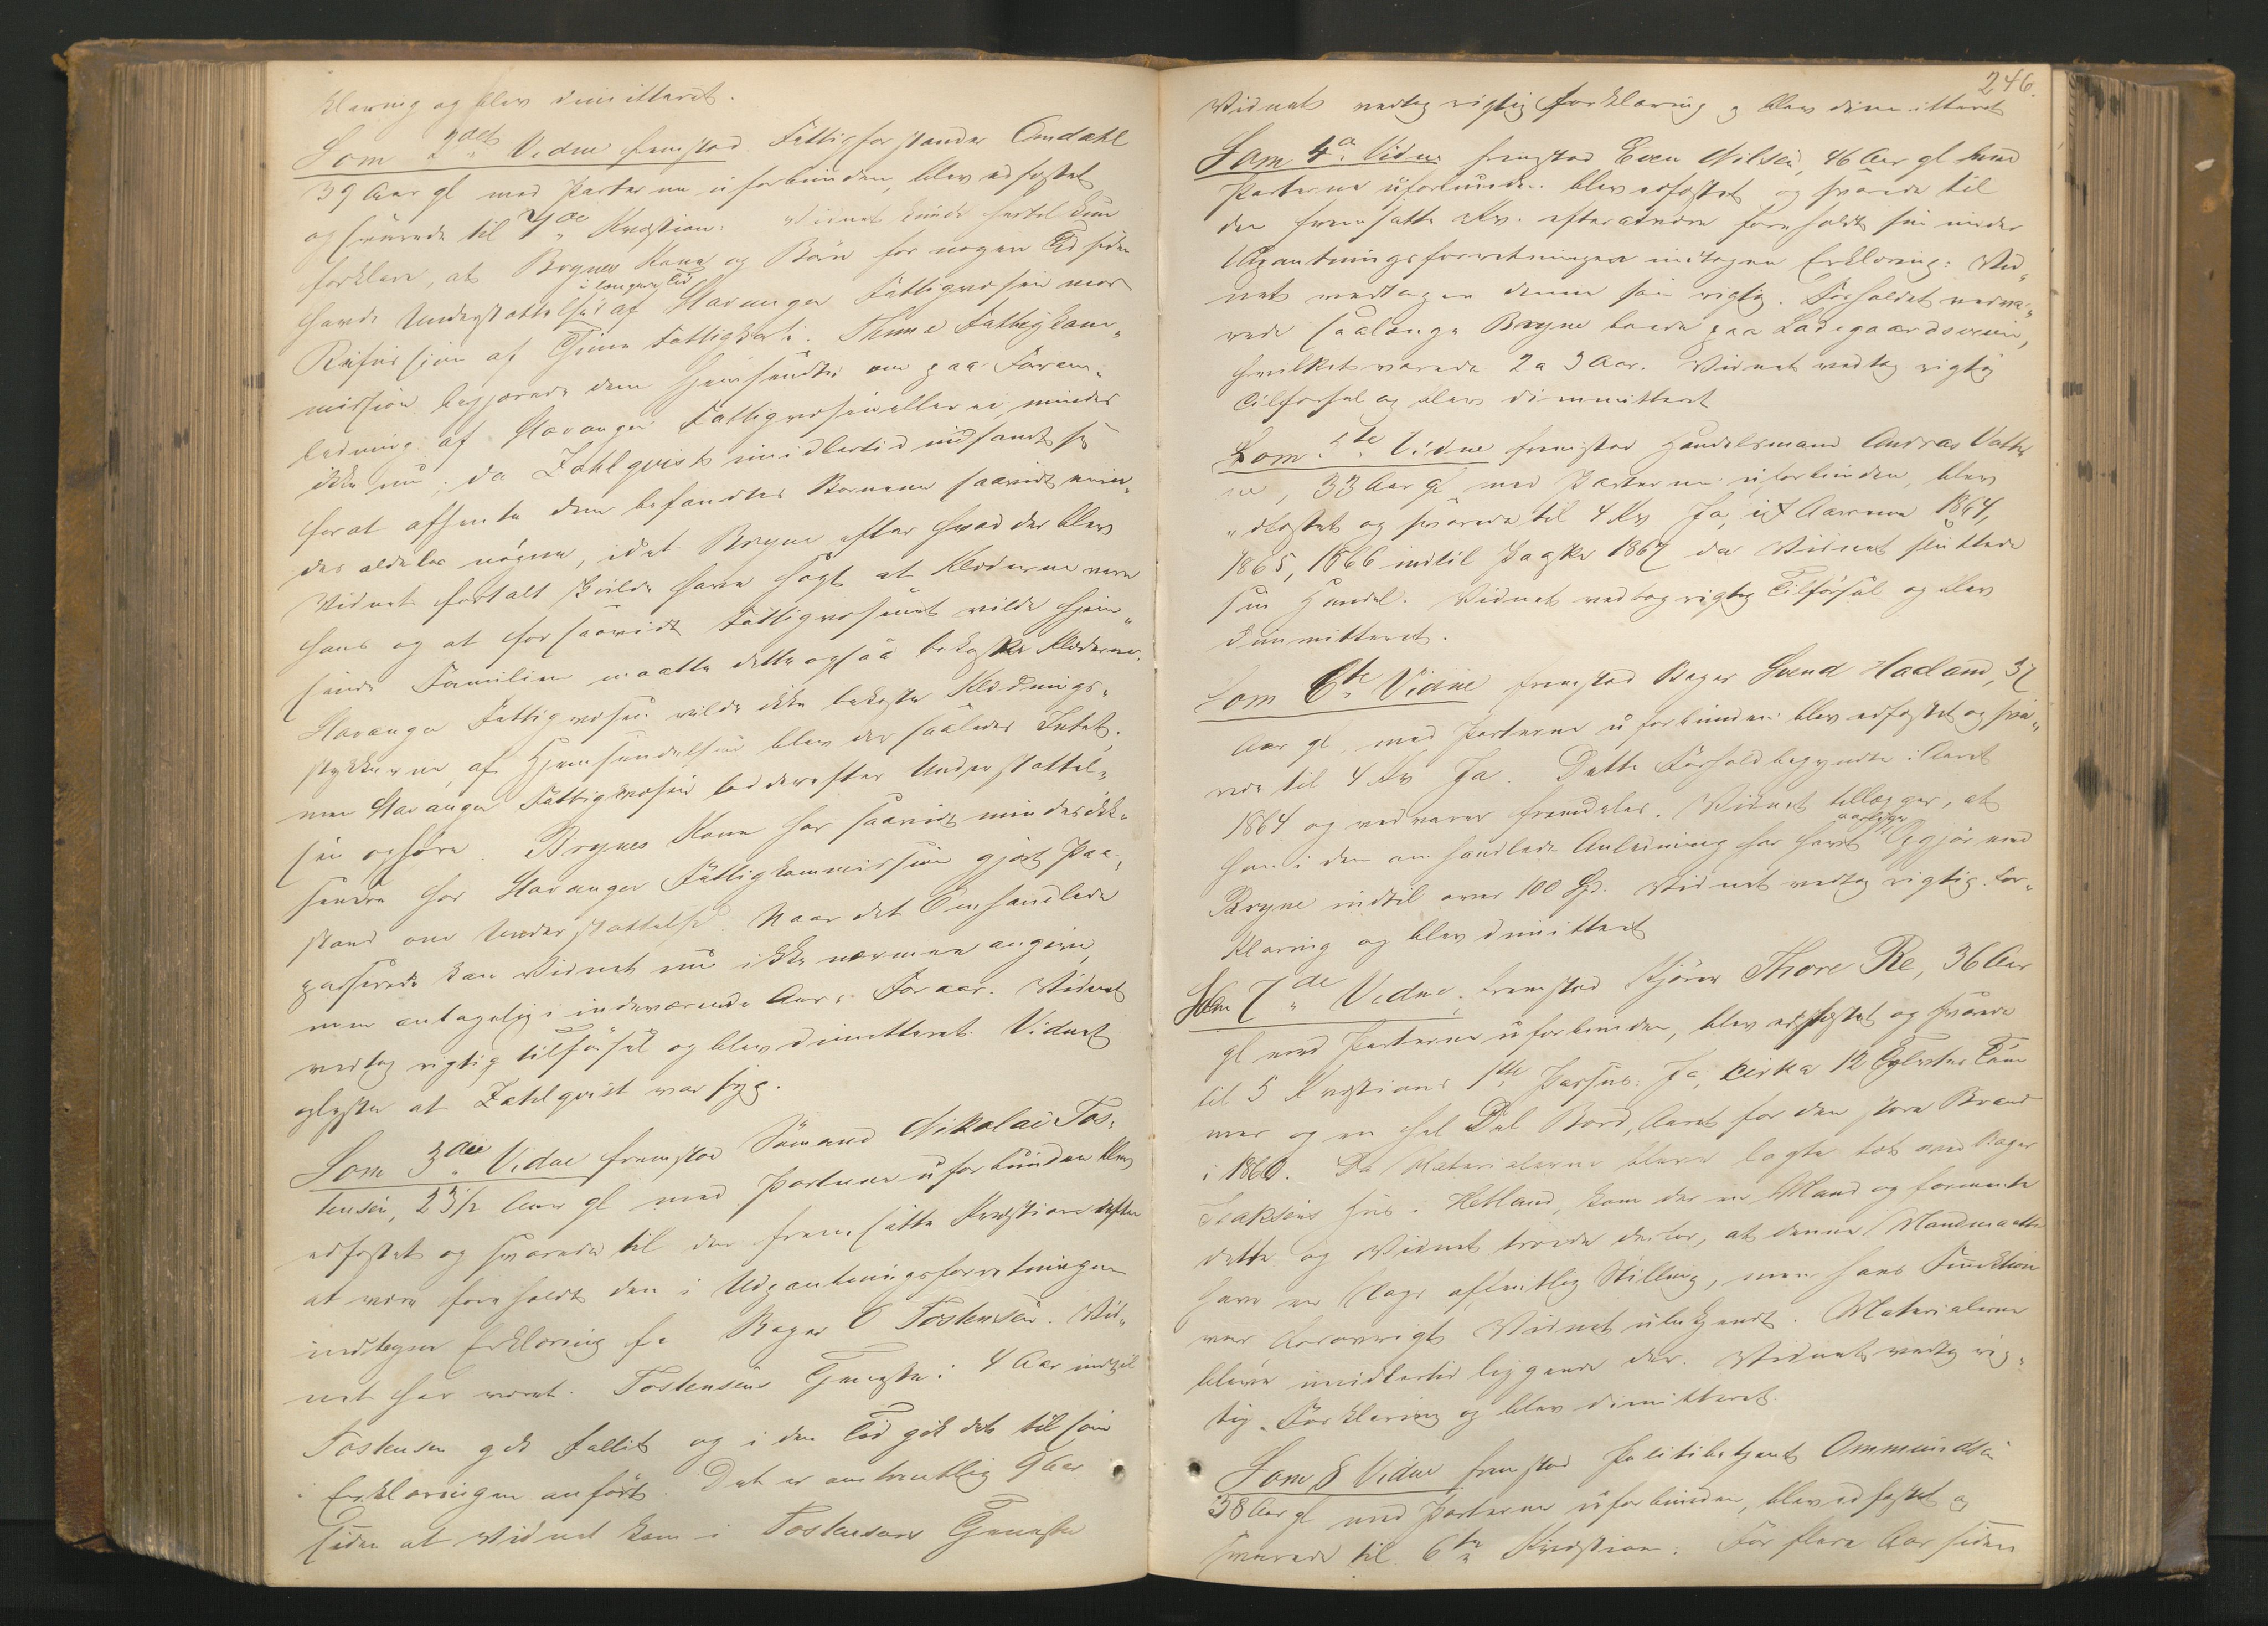 klaring og blev dimitteret.
Som 2det Vidne fremstod Fattigforstander Omdahl
39 Aar gl med Parterne uforbunden, blev edfæstet
og svarede til 7de Kvæstion: Vidnet kunde hertil kun
forklare, at Brynes Kone og Børn for nogen Tid siden
i længere Tid
havde Understøttelse af Stavanger Fattigvæsen mod
Refusion af Thime Fattigkasse. Thime Fattigkom„
mission begjærede dem hjemsendte om paa Foran„
ledning af Stavanger Fattigvæsen eller ei mindes
ikke nu; da Zahlqvist imidlertid indfandt sig
for at afhente dem befandtes Børnene saavidt erin„
dres aldeles nøgne, idet Bryne efter hvad der blev
Vidnet fortalt skulde have sagt at Klæderne vare
hans og at forsaavidt Fattigvæsenet vilde hjem„
sende Familien maatte dette ogsaa bekoste Klæderne.
Stavanger Fattigvæsen vilde ikke bekoste Klædnings„
stykkerne, af Hjemsendelsen blev der saaledes Intet,
men Stavanger Fattigvæsen lod derefter Understøttel„
sen ophøre. Brynes Kone har saavidt mindes ikke
senere hos Stavanger Fattigkommission gjort Paa„
stand om Understøttelse. Naar det Omhandlede
passerede kan Vidnet nu ikke nærmere angive,
men antagelig i indeværende Aars Foraar. Vidnet
vedtog rigtig tilførsel og blev dimitteret. Vidnet
oplyste at Zahlqvist var syg.
Som 3die Vidne fremstod Sømand Nikolai Tos„
tensen, 23½ Aar gl med Parterne uforbunden blev
edfæstet og svarede til den fremsatte Kvæstion efter
at være foreholdt den i Udpantningsforretningen
indtagne Erklæring fra Bager O Tostensen. Vid„
net har været i Tostensens Tjeneste i 4 Aar indtil
Tostensen gik fallit og i den Tid gik det til som
i Erklæringen anført. Det er omtrentlig 9 Aar
siden at Vidnet kom i Tostensens Tjeneste
246.
Vidnet vedtog rigtig forklaring og blev dimitteret
Som 4de Vidne fremstod Even Nilsen, 46 Aar gl med
Parterne uforbunden blev edfæstet og svarede til
den fremsatte Kv. efter at være foreholdt sin under
Udpantningsforretningen indtagne Erklæring: Vid„
net vedtager denne som rigtig. Forholdet vedva„
rede saalænge Bryne boede paa Ladegaardsveien,
hvilket varede 2 a 3 Aar. Vidnet vedtog rigtig
Tilførsel og blev dimmitteret
Som 5te Vidne fremstod Handelsmand Andreas
33 Aar gl med Parterne uforbunden, blev
edfæstet og svarede til 4 Kv Ja, i Aarene 1864,
1865, 1866 indtil Paaske 1867 da Vidnet sluttede
sin Handel. Vidnet vedtog rigtig Tilførsel og blev
dimmitteret.
Som 6te Vidne fremstod Bager Svend Haaland, 37
Aar gl, med Parterne uforbunden blev edfæstet og sva„
rede til 4 Kv Ja. Dette Forhold begyndte i Aaret
1864 og vedvarer fremdeles. Vidnet tillægger, at
aarligt
han i den omhandlede Anledning har havt Opgjør med
Bryne indtil over 100 Spd. Vidnet vedtog rigtig For„
klaring og blev dimitteret
Som 7de Vidne, fremstod Kjører Thore Re, 36 Aar
gl med Parterne uforbunden, blev edfæstet og svarede
til 5 Kvæstions 1ste Passus. Ja, cirka 12 Tylvter Tøm
mer og en Hel Del Bord, Aaret før den store Brand
i 1860. Da Materialerne bleve lagte tæt ved Bager
Isaksens Hus i Hetland, kom der en Mand og formente
dette og Vidnet troede derfor, at denne Mand maatte
have en Slags offentlig Stilling, men hans Funktion
var forøvrigt Vidnet ubekjendt. Materialerne
bleve imidlertid liggende der. Vidnet vedtog rig„
tig Forklaring og blev dimitteret.
Som 8 Vidne fremstod Politibetjent Ommundsen
38 Aar gl med Parterne uforbunden, blev edfæstet og
svarede til 6te Kvæstion: For flere Aar siden